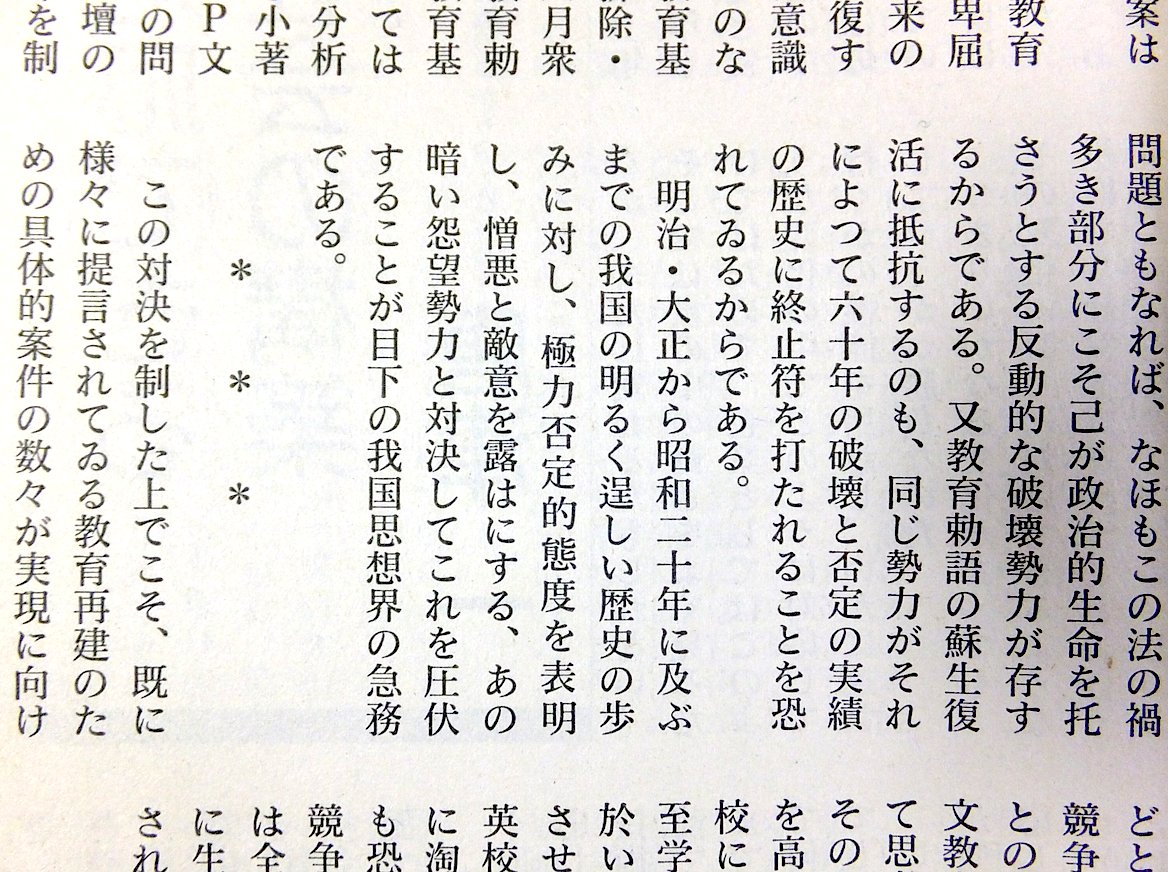 案は
教育
卑屈
来の
復す
意識
のな
育基
除・
月衆
育勅
育基
ては
分析
小著
P文
の問
壇の
を制
問題ともなれば、なほもこの法の禍
多き部分にこそ己が政治的生命を托
さうとする反動的な破壊勢力が存す
るからである。又教育勅語の蘇生復
活に抵抗するのも、同じ勢力がそれ
によつて六十年の破壊と否定の実績
の歴史に終止符を打たれることを恐
れてゐるからである。
明治・大正から昭和二十年に及ぶ
までの我国の明るく逞しい歴史の歩
みに対し、極力否定的態度を表明
し、憎悪と敵意を露はにする、あの
暗い怨望勢力と対決してこれを圧伏
することが目下の我国思想界の急務
である。
＊　＊　＊
この対決を制した上でこそ、既に
様々に提言されてゐる教育再建のた
めの具体的案件の数々が実現に向け
どと
競争
との
文教
て思
その
を高
校に
至学
於い
させ
英校
に淘
も恐
競争
は全
に生
され